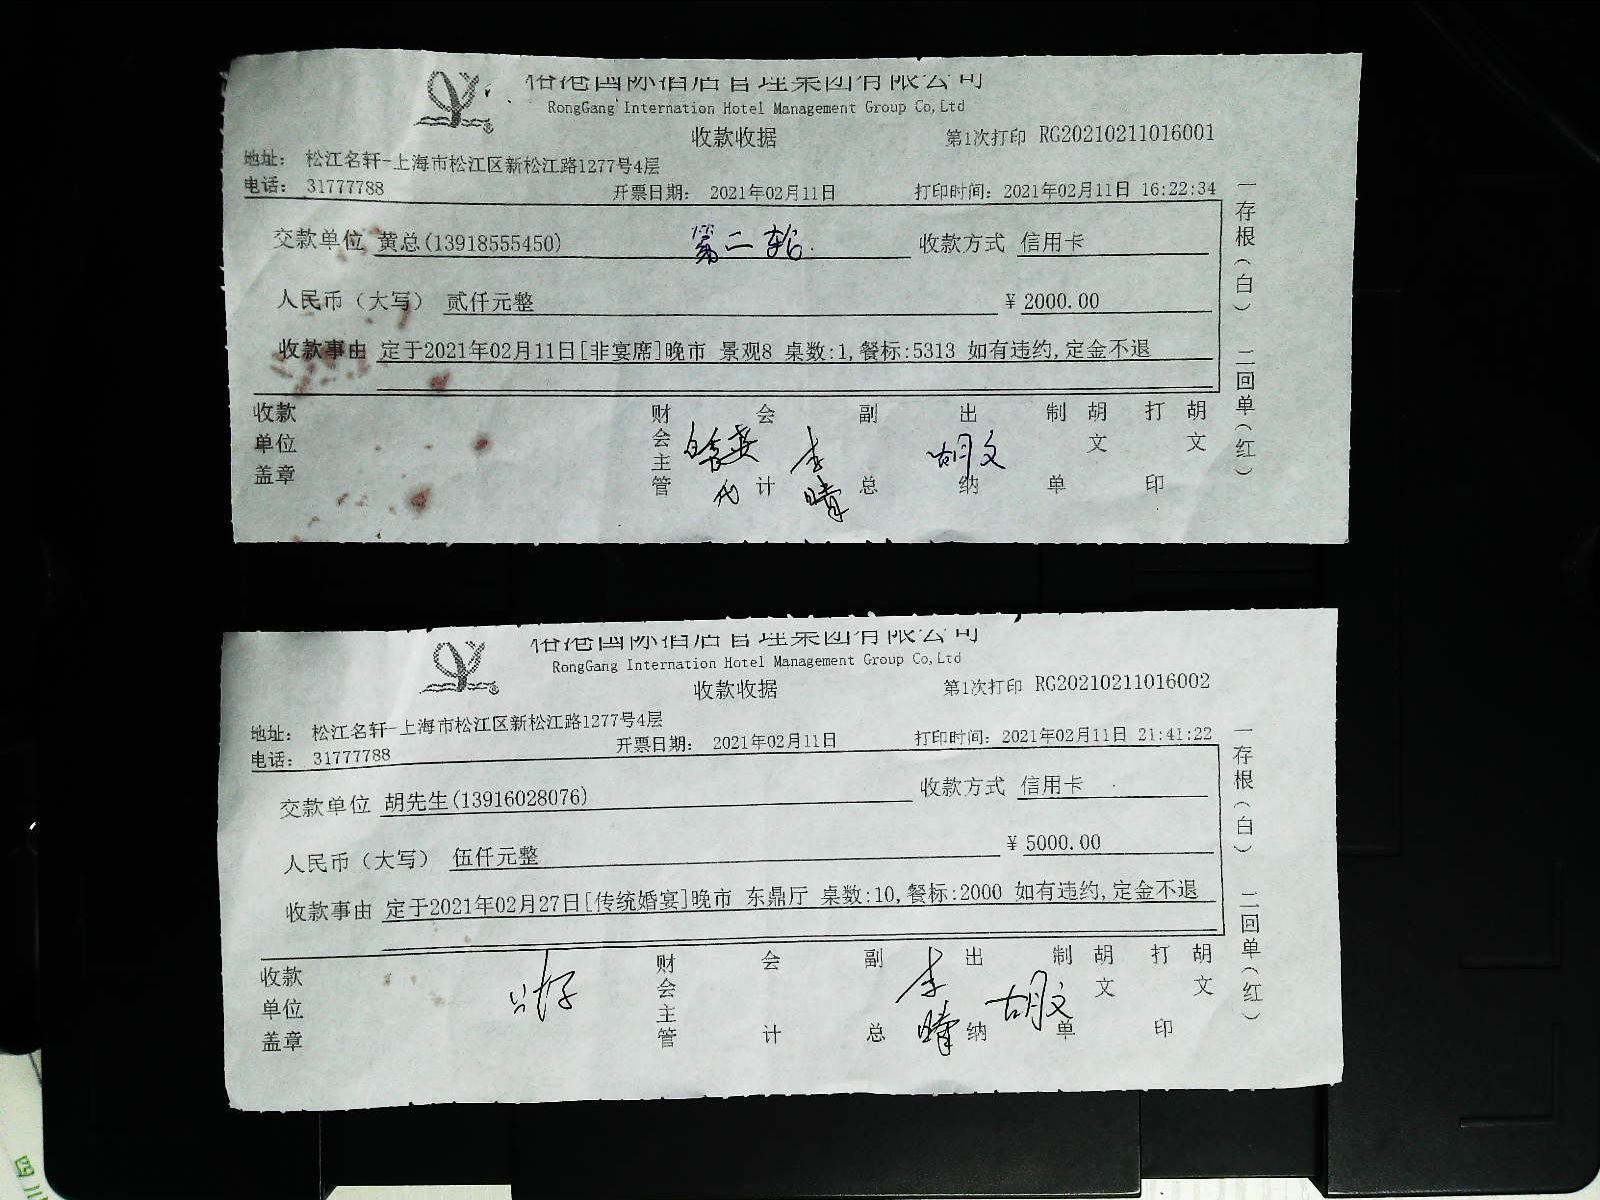 裕港国际酒店管理集团有限公司
RongGang International Hotel Management Group Co,Ltd
收款收据
第1次打印 RG20210211016001
地址： 松江名轩-上海市松江区新松江路1277号4层
电话： 31777788 开票日期： 2021年02月11日 打印时间：2021年02月11日 16:22:34
交款单位 黄总(13918555450) 第二轮 收款方式 信用卡
人民币（大写） 贰仟元整 ¥ 2000.00
收款事由 定于2021年02月11日[非宴席]晚市 景观8 桌数:1,餐标:5313 如有违约,定金不退
收款单位盖章 财会主管 会计 李晴 副总 出纳 胡文 制单 胡文 打印 胡文
一存根（白） 二回单（红）
裕港国际酒店管理集团有限公司
RongGang International Hotel Management Group Co,Ltd
收款收据
第1次打印 RG20210211016002
地址： 松江名轩-上海市松江区新松江路1277号4层
电话： 31777788 开票日期： 2021年02月11日 打印时间：2021年02月11日 21:41:22
交款单位 胡先生(13916028076) 收款方式 信用卡
人民币（大写） 伍仟元整 ¥ 5000.00
收款事由 定于2021年02月27日[传统婚宴]晚市 东鼎厅 桌数:10,餐标:2000 如有违约,定金不退
收款单位盖章 财会主管 会计 副总 李晴 出纳 胡文 制单 胡文 打印 胡文
一存根（白） 二回单（红）
四川